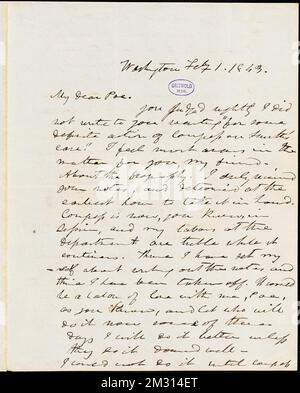 Washington Feby 1. 1843.
GRISWOLD
MSS.
My Dear Poe,
you judged rightly I did
not write to you waiting for some
definite action of Congress on Smith's
case. I feel most anxious in the
matter for you, my friend.
About the biography I duly received
your notes, and determined at the
earliest hour to take it in hand.
Congress is now, you know, in
session, and my labors at the
department are treble while it
continues. Since I have set my
self about writing out the notes, and
then I have been taken off. It would
be a labor of love with me, Poe,
as you know, and let who will
do it now some of these
days I will do it better unless
they do it damned well —
I could not do it until Congress
alamy
Image ID: 2M314ET
www.alamy.com